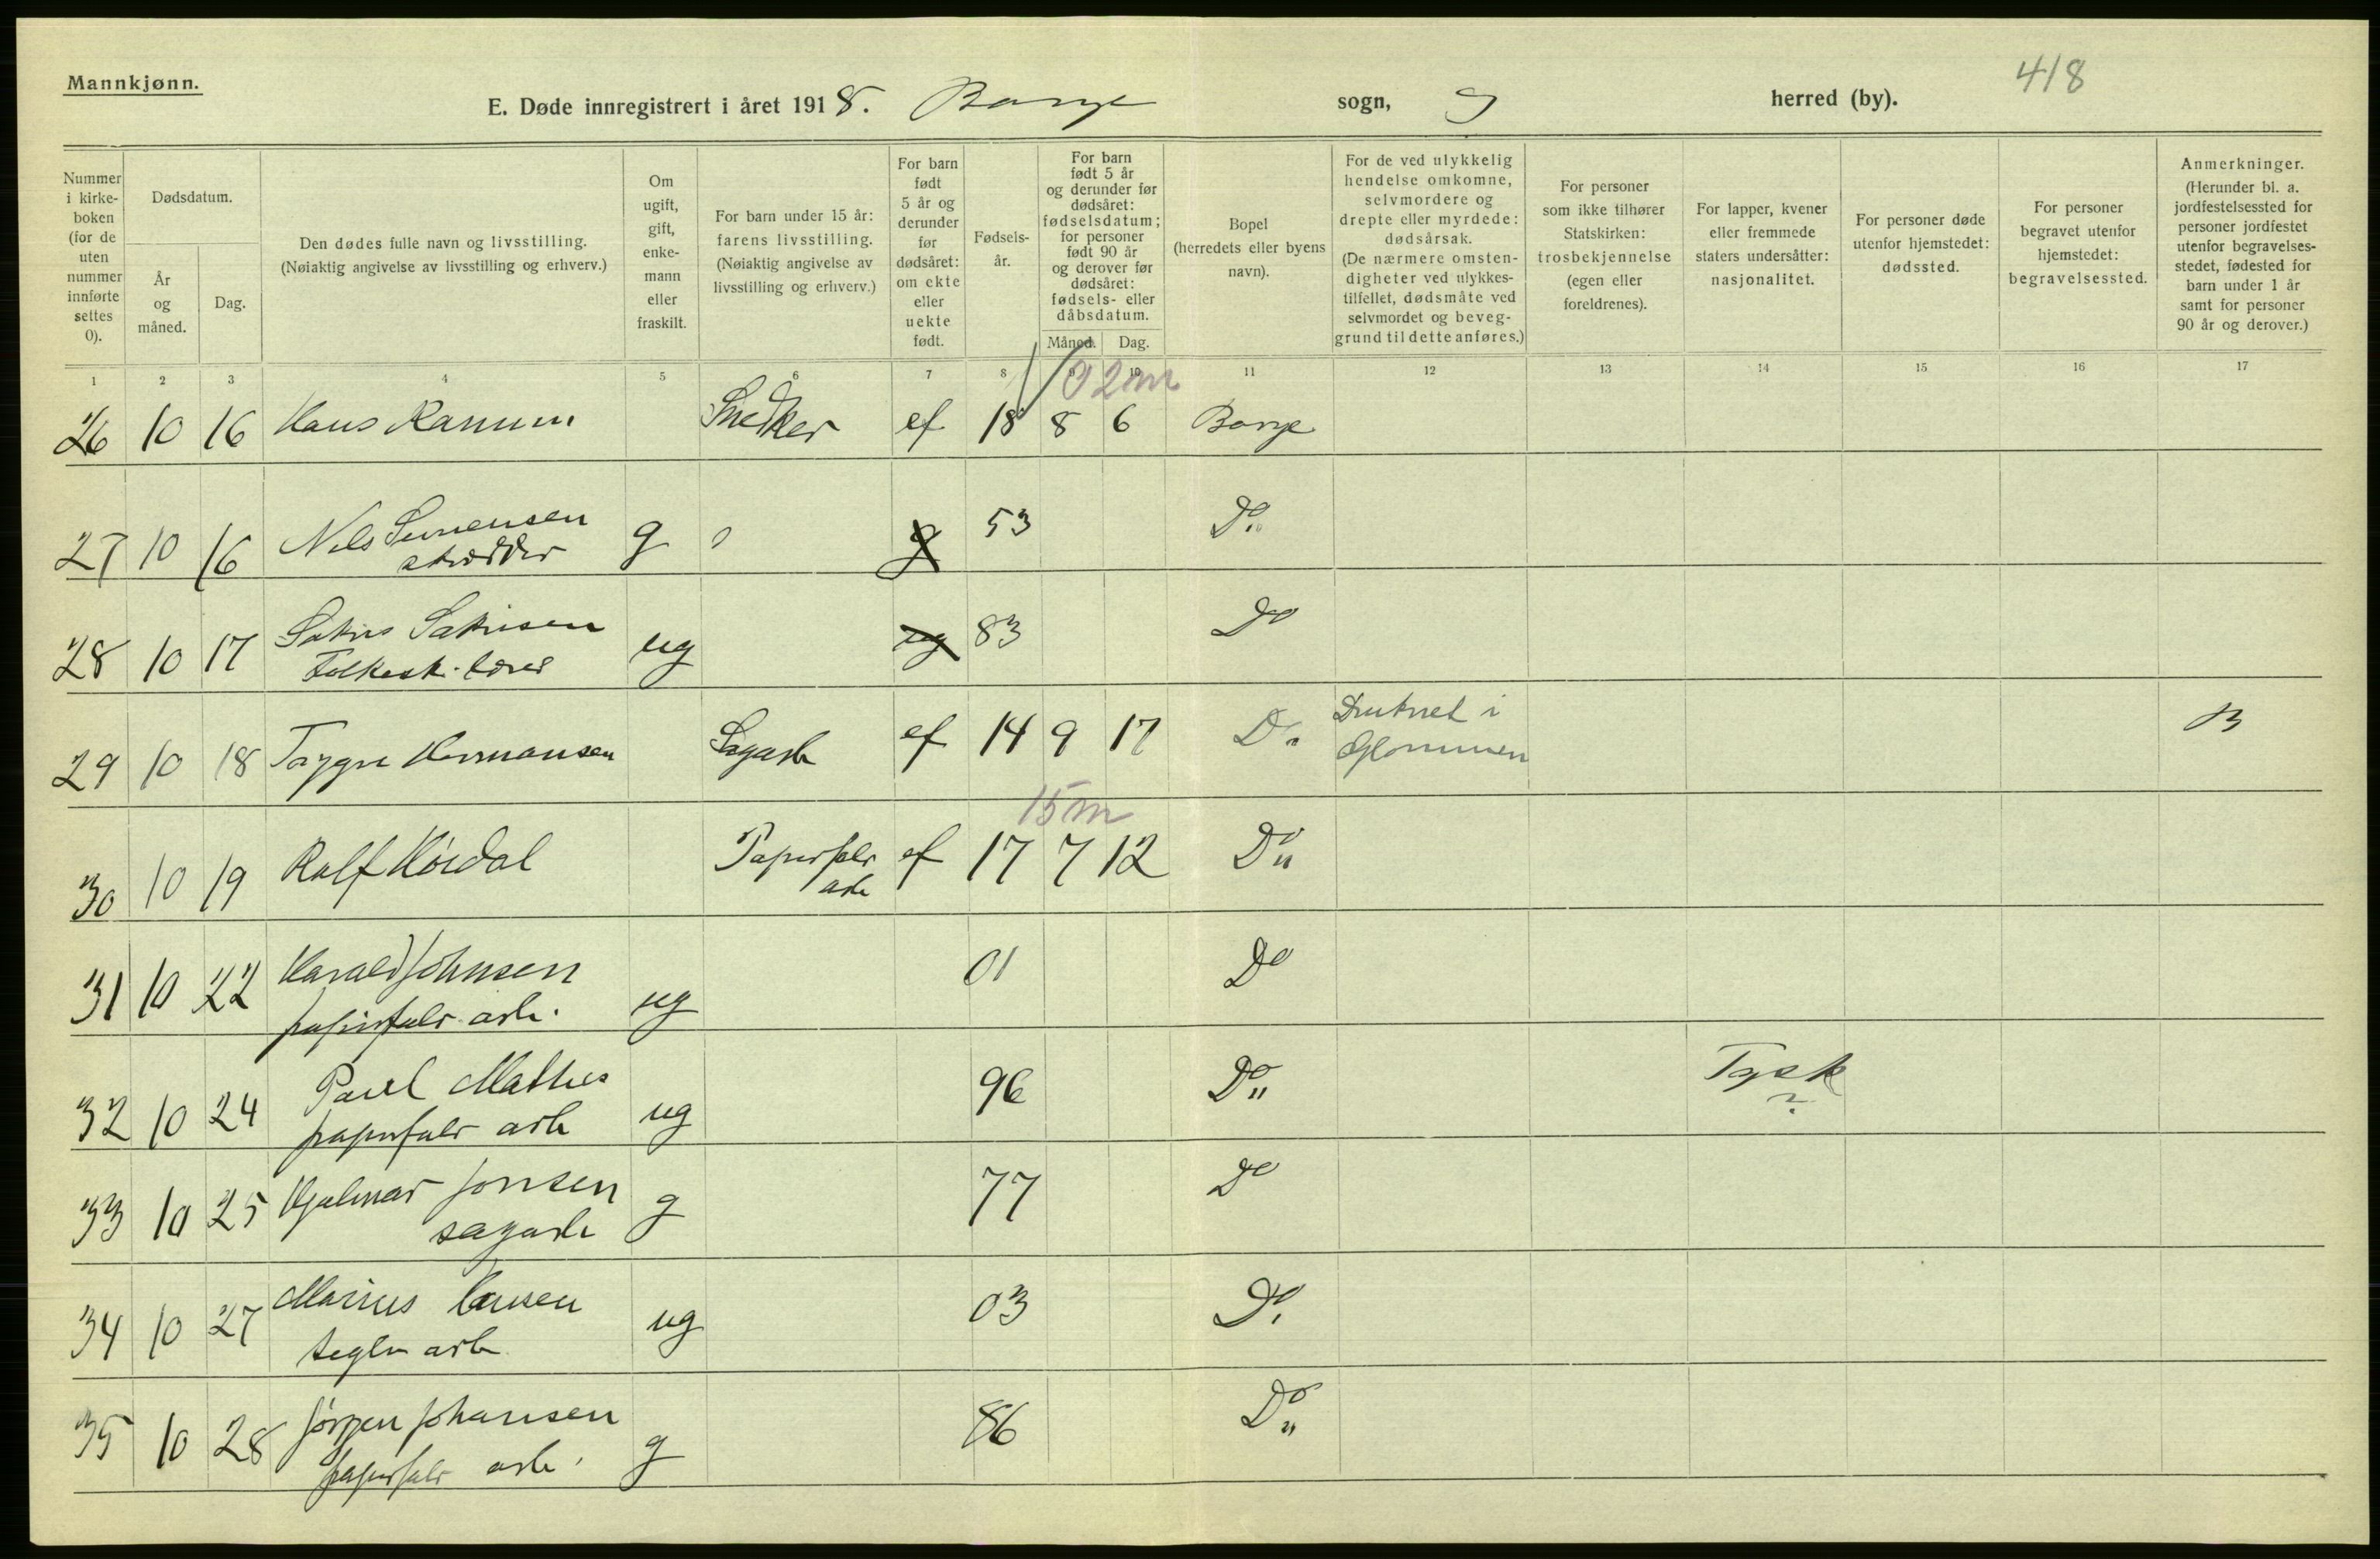 Mannkjønn.
418
E. Døde innregistrert i året 1918. Borge sogn, herred (by).
Nummer i kirke-boken (for de uten nummer innførte settes 0).
Dødsdatum.
År og måned.
Dag.
Den dødes fulle navn og livsstilling.
(Nøiaktig angivelse av livsstilling og erhverv.)
Om ugift, gift, enke-mann eller fraskilt.
For barn under 15 år: farens livsstilling.
(Nøiaktig angivelse av livsstilling og erhverv.)
For barn født 5 år og derunder før dødsåret: om ekte eller uekte født.
Fødsels-år.
For barn født 5 år og derunder før dødsåret: fødselsdatum; for personer født 90 år og derover før dødsåret: fødsels- eller dåbsdatum.
Måned.
Dag.
Bopel (herredets eller byens navn).
For de ved ulykkelig hendelse omkomne, selvmordere og drepte eller myrdede: dødsårsak.
(De nærmere omsten-digheter ved ulykkes-tilfellet, dødsmåte ved selvmordet og beveg-grund til dette anføres.)
For personer som ikke tilhører Statskirken: trosbekjennelse (egen eller foreldrenes).
For lapper, kvener eller fremmede staters undersåtter: nasjonalitet.
For personer døde utenfor hjemstedet: dødssted.
For personer begravet utenfor hjemstedet: begravelsessted.
Anmerkninger.
(Herunder bl. a. jordfestelsessted for personer jordfestet utenfor begravelses-stedet, fødested for barn under 1 år samt for personer 90 år og derover.)
1 2 3 4 5 6 7 8 9 10 11 12 13 14 15 16 17
2m
26 10 16 Hans Ranum Snedker ef 18 8 6 Borge
27 10 16 Nils g g 53 Do
28 10 17 ug ug 83 Do
Folkesk. lærer
29 10 18 Trygve Hermansen Sagarb ef 14 9 17 Do Druknet i
Glommen
15m
30 10 19 Rolf Papirfabr ef 17 7 12 Do
arb
31 10 22 Harald Johnsen ug 01 Do
papirfabr. arb.
32 10 24 Paul ug 96 Do Tysk
papirfabr arb ?
33 10 25 Hjalmar Jonsen g 77 Do
sagarb
34 10 27 Marius ug 03 Do
teglv arb
35 10 28 Jörgen Johansen g 86 Do
papirfabr arb.